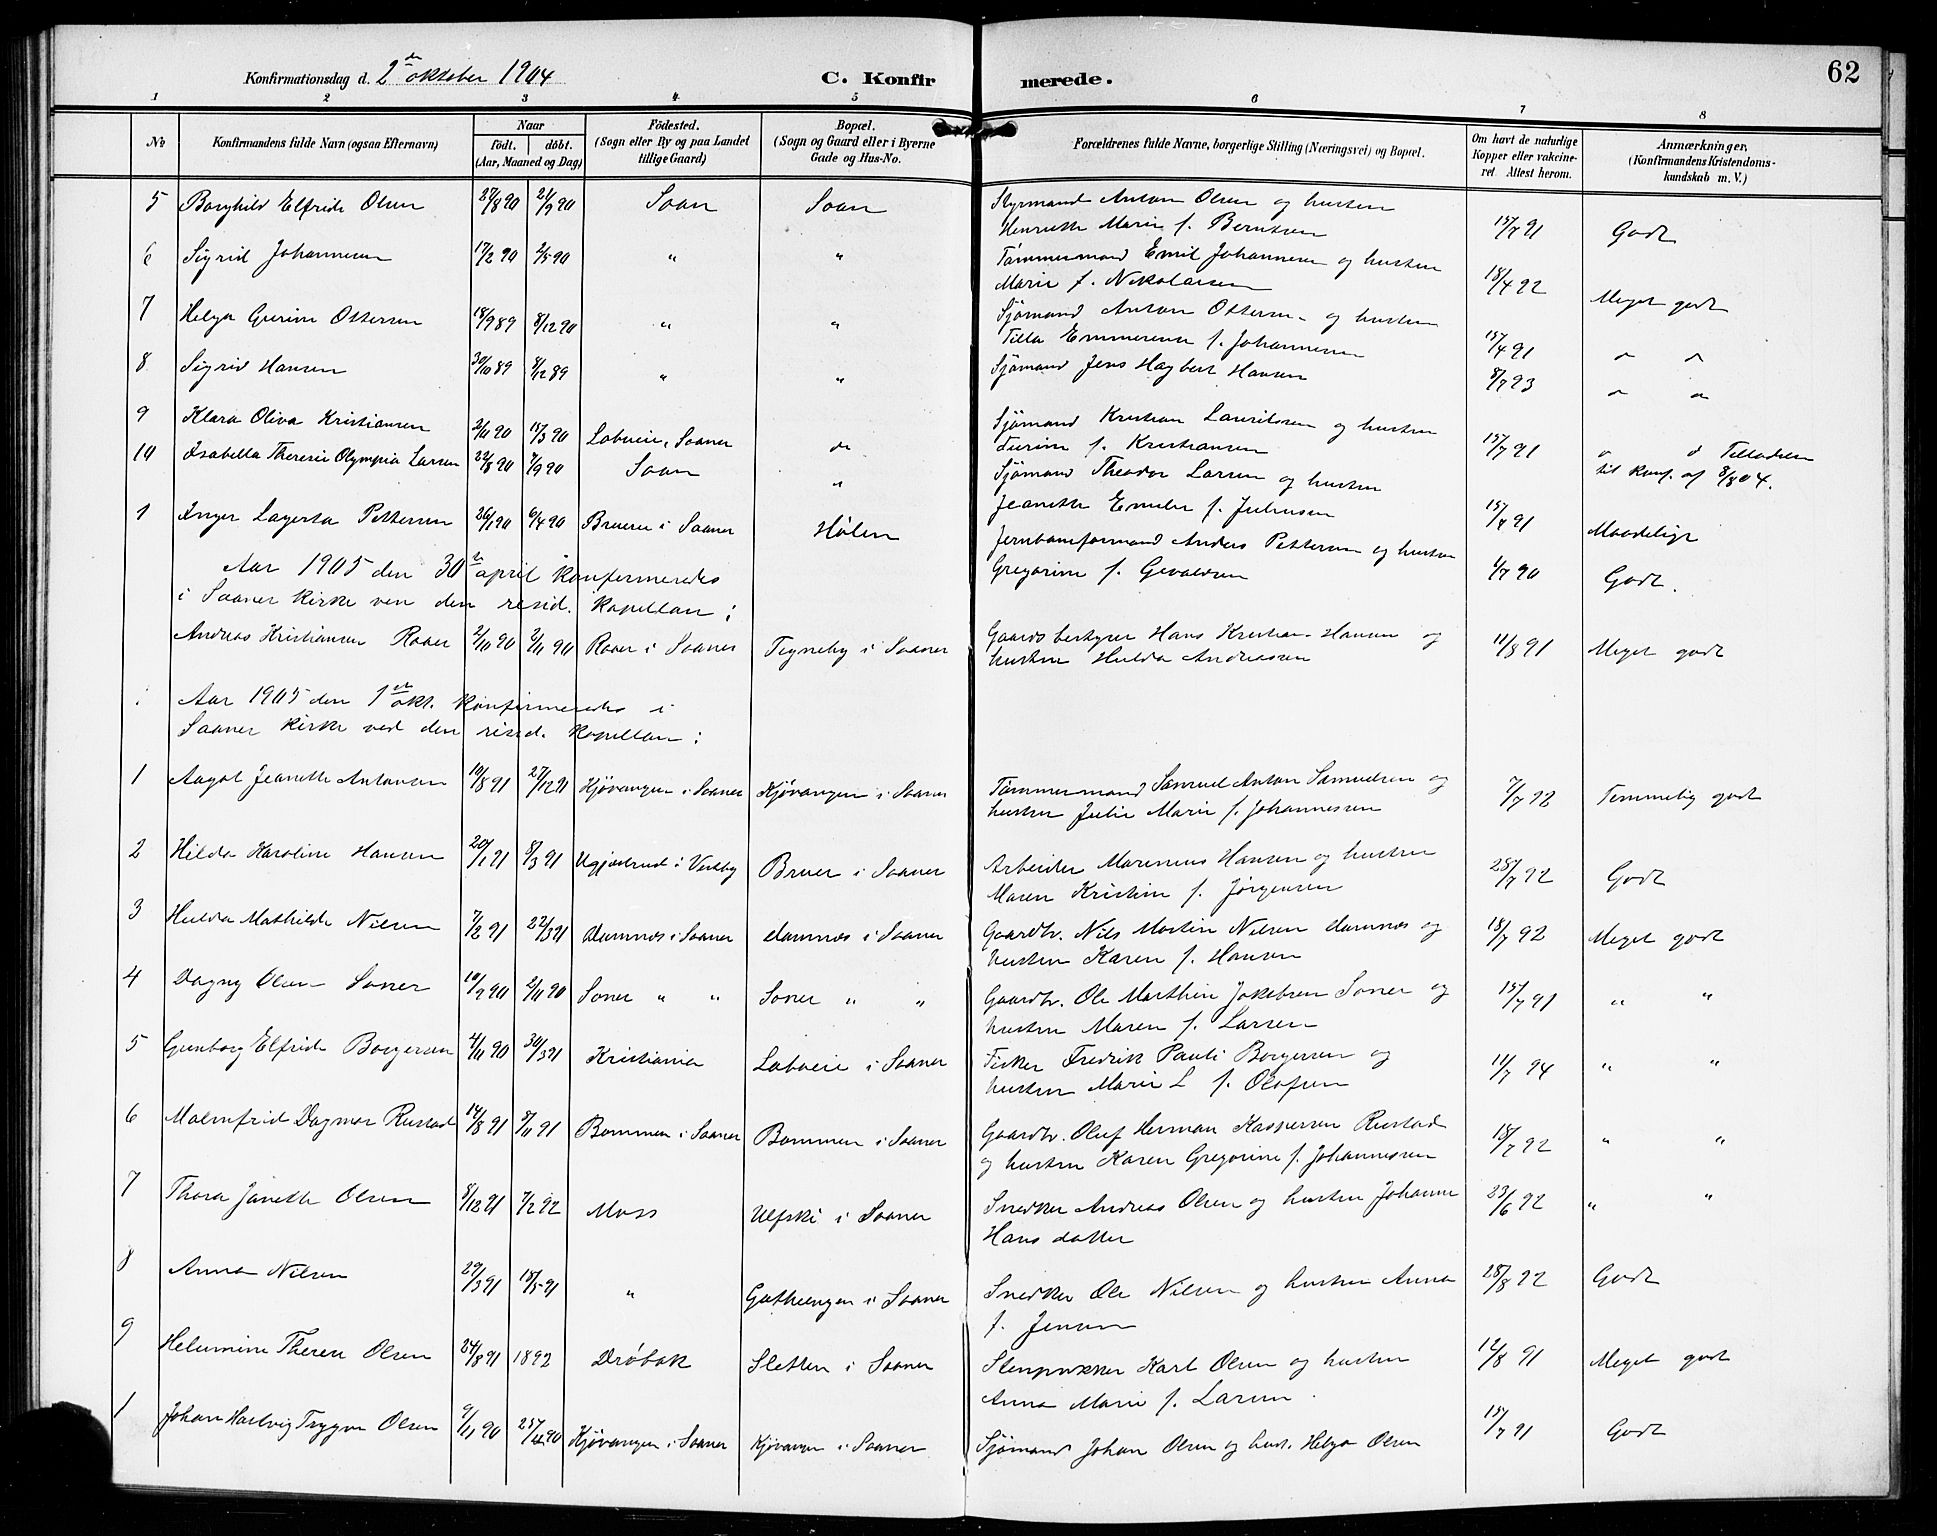 Konfirmationsdag d. 2den oktober 1904
C. Konfirmerede.
62
1 2 3 4 5 6 7 8
No
Konfirmandens fulde Navn (ogsaa Efternavn)
Naar
født. døbt.
(Aar, Maaned og Dag)
Fødested.
(Sogn eller By og paa Landet
tillige Gaard)
Bopæl.
(Sogn og Gaard eller i Byerne
Gade og Hus-No.
Forældrenes fulde Navne, borgerlige Stilling (Næringsvei) og Bopæl.
Om havt de naturlige
Kopper eller vakcine-
ret Attest herom.
Anmærkninger,
(Konfirmandens Kristendoms-
kundskab m. V.)
5 Borghild Elfride Olsen 27/8 90 21/9 90 Soon Soon Styrmand Anton Olsen og hustru
Henriette Marie f. Berntsen 15/7 91 Godt
6 Sigrid Johannesen 17/2 90 2/5 90 " " Tømmermand Emil Johannesen og hustru
Marie f. Nikolaisen 18/4 92 Meget godt
7 Helga Gurine Ottersen 18/9 89 8/12 90 " " Sjømand Anton Ottersen og hustru
Tilla Emmerense f. Johannesen 15/4 91 " "
8 Sigrid Hansen 30/10 89 8/12 89 " " Sjømand Jens Hagbert Hansen 8/7 93 " "
9 Klara Oliva Kristiansen 2/11 90 15/3 90 Labveie, Saaner " Sjømand Kristian Lauritssen og hustru
f. Kristiansen 15/7 91 " " Tilladelse
til konf. af 8/8 04.
10 Isabella Theresie Olympia Larsen 22/8 90 7/9 90 Soon " Sjømand Theodor Larsen og hustru
Jeanette Emilie f. Juliussen 15/7 91 Maadelige
1 Inger Lagerta Pettersen 26/1 90 6/4 90 Brueren i Saaner Hølen Jernbaneformand Anders Pettersen og hustru
Gregorine f. Gevaldsen 1/7 90 Godt.
Aar 1905 den 30te april konfirmeredes
i Saaner kirke ven den resid. kapellan:
Andreas Kristiansen Roaer 2/10 90 2/11 90 Roaer i Saaner Tegneby i Saaner Gaardsbestyrer Hans Kristian Hansen og
hustru Hulda Andreassen 11/8 91 Meget godt
Aar 1905 den 1ste okt. konfirmeredes i
Saaner kirke ved den resid. kapellan:
1 Aagot Jeanette Antonsen 10/8 91 27/12 91 Kjøvangen i Saaner Kjøvangen i Saaner Tømmermand Samuel Anton Samuelsen og
hustru Julie Marie f. Johannessen 7/7 92 Temmelig godt
2 Hilda Karoline Hansen 20/1 91 8/3 91 Ugjestrud i Vestby Bruer i Saaner Arbeider Marenius Hansen og hustru
Maren Kristine f. Jørgensen 28/7 92 Godt
3 Hulda Mathilde Nilsen 7/2 91 22/3 91 Damnæs i Saaner Damnæs i Saaner Gaardbr. Nils Martin Nilsen Damnæs og
hustru Karen f. Hansen 18/7 92 Meget godt
4 Dagny Olsen Soner 10/9 90 2/11 90 Soner " " Soner " " Gaardbr. Ole Marthin Jakobsen Soner og
hustru Maren f. Larsen 15/7 91 " "
5 Gunborg Elfride Borgersen 4/11 90 30/3 91 Kristiania Labveie i Saaner Fisker Fredrik Pauli Borgersen og
hustru Marie L f. Olafsen 11/7 94 " "
6 Malmfrid Dagmar Rustad 14/8 91 8/11 91 Bommen i Saaner Bommen i Saaner Gaardbr. Oluf Herman Kaspersen Rustad
og hustru Karen Gregorine f. Johannessen 18/7 92 " "
7 Thora Janette Olsen 8/12 91 7/2 92 Moss Ulfski i Saaner Snedker Andreas Olsen og hustru Johanne
Hansdatter 23/6 92 " "
8 Anna Nilsen 29/3 91 18/5 91 " Gathengen i Saaner Snedker Ole Nilsen og hustru Anna
f. Jensen 28/8 92 Godt
9 Helumine Therese Olsen 24/8 91 1892 Drøbak Sletten i Saaner Stenpukker Karl Olsen og hustru
Anna Marie f. Larsen 12/8 91 Meget godt
1 Johan Hartvig Trygve Olsen 9/11 90 25/12 90 Kjøvangen i Saaner Kjøvangen i Saaner Sjømand Johan Olsen og hust. Helga Olsen 15/7 91 Godt